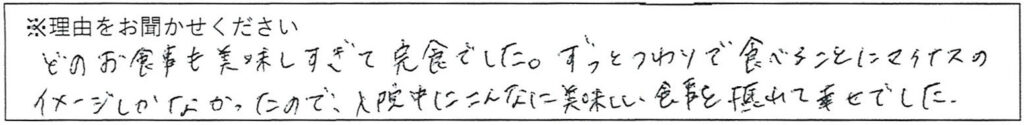 ※理由をお聞かせください
どのお食事も美味しすぎて完食でした。ずっとつわりで食べることにマイナスの
イメージしかなかったので、入院中にこんなに美味しい食事を摂れて幸せでした.